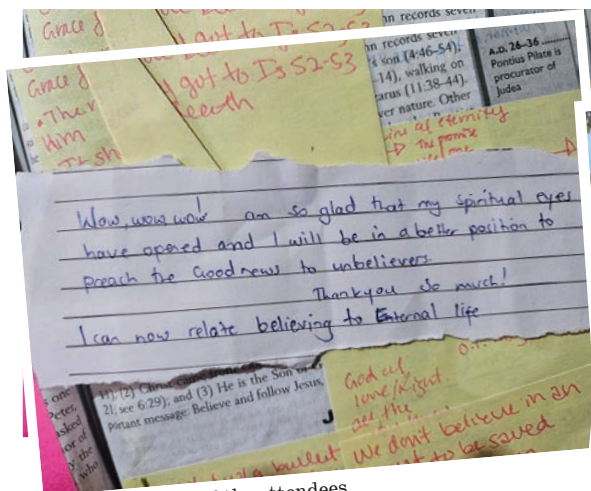 Grace &
got to Is 52-53
nn records seven
Grace &
.Ther
him
It sh
y got to Is 52-53
death
nn records seven
s son (4:46-54);
-14), walking on
arus (11:38-44).
ver nature. Other
A.D. 26–36
Pontius Pilate is
procurator of
Judea
of eternity
The promise
Wow, wow wow! am so glad that my spiritual eyes
have opened and I will be in a better position to
preach the Good news to unbelievers.
Thankyou so much!
I can now relate believing to Enternal life
one
Peter,
asked
or of
y the
who
(2) Christ came from
21; see 6:29); and (3) He is the Son of
portant message: Believe and follow Jesus,
J
God of
love/light.
a bullet We don't believe in an
to be saved
attendees